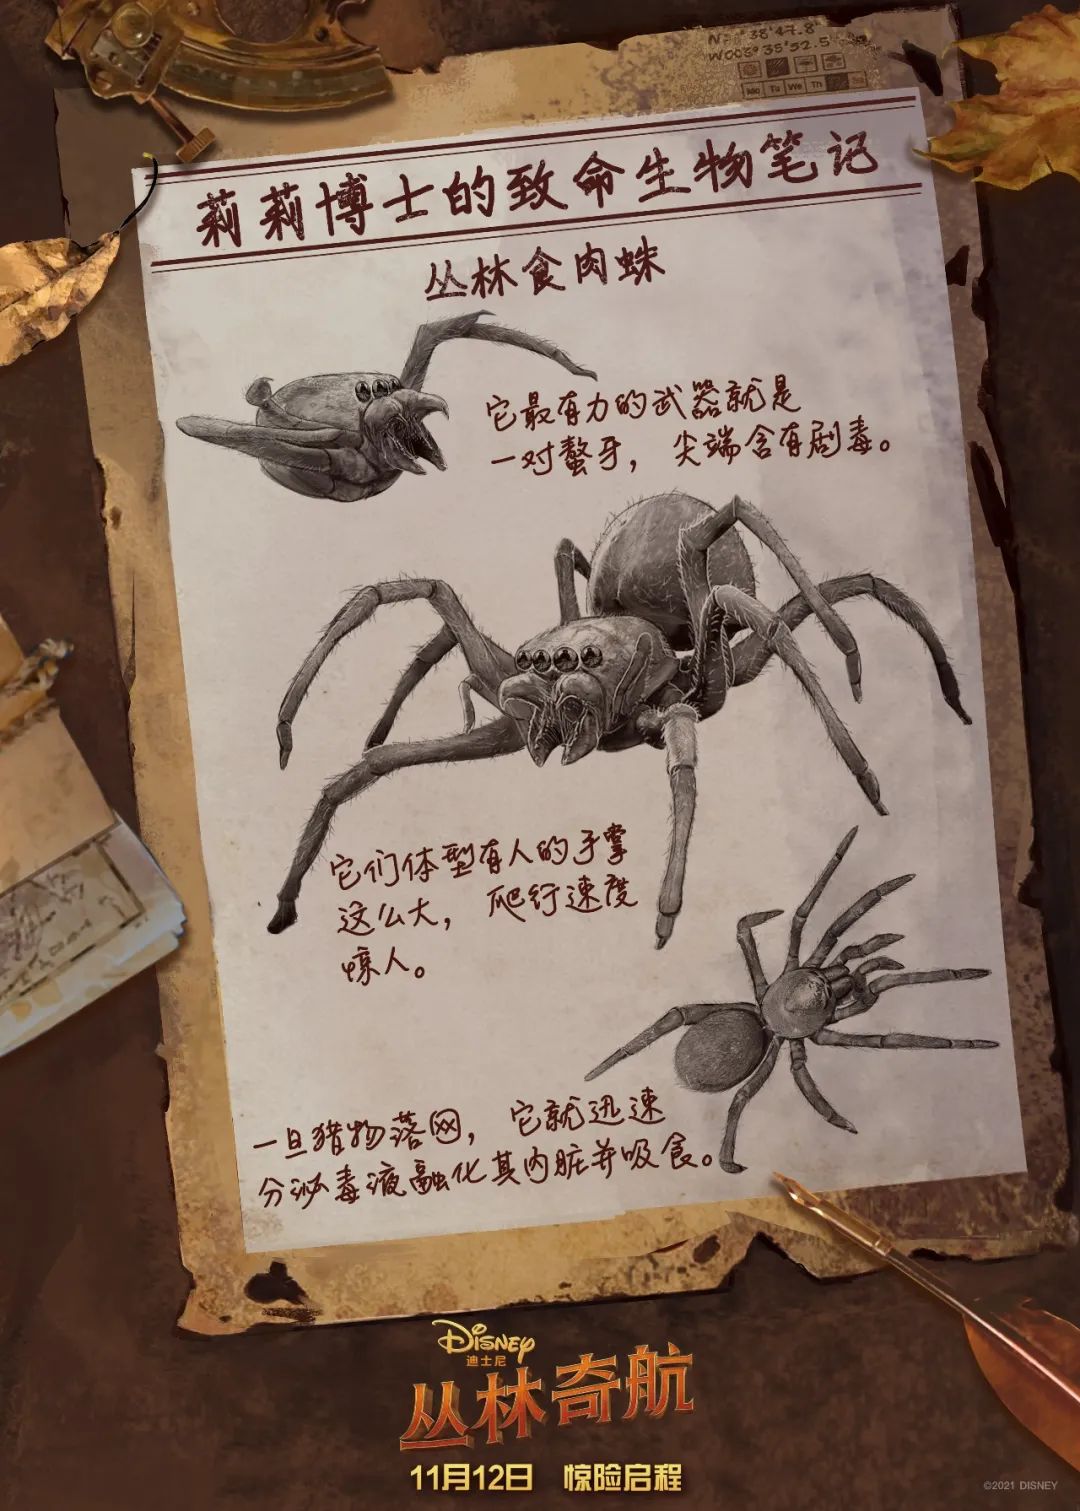 N: °38'47.8"
W003°35'52.5"
Mo Tu We Th
莉莉博士的致命生物笔记
丛林食肉蛛
它最有力的武器就是
一对螯牙，尖端含有剧毒。
它们体型有人的手掌
这么大，爬行速度
惊人。
一旦猎物落网，它就迅速
分泌毒液融化其内脏并吸食。
Disney
迪士尼
丛林奇航
11月12日 惊险启程
©2021 DISNEY